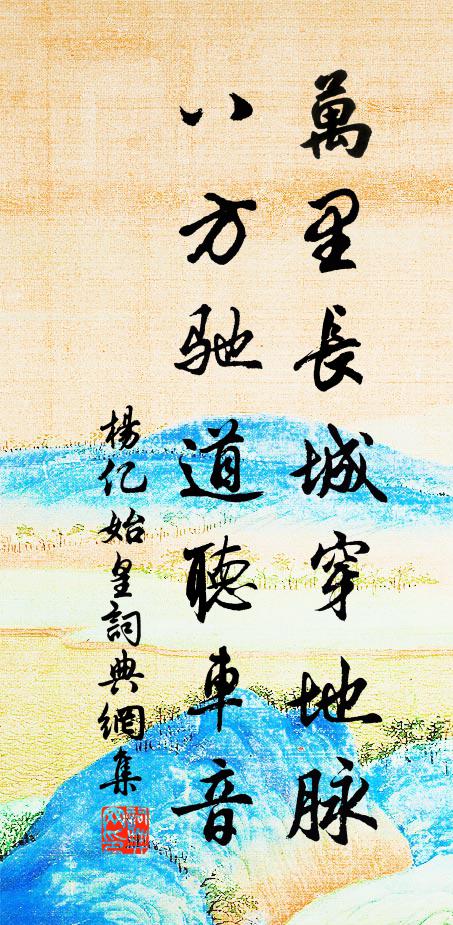 萬里長城穿地脉
八方馳道聽車音
楊億始皇詞典網集